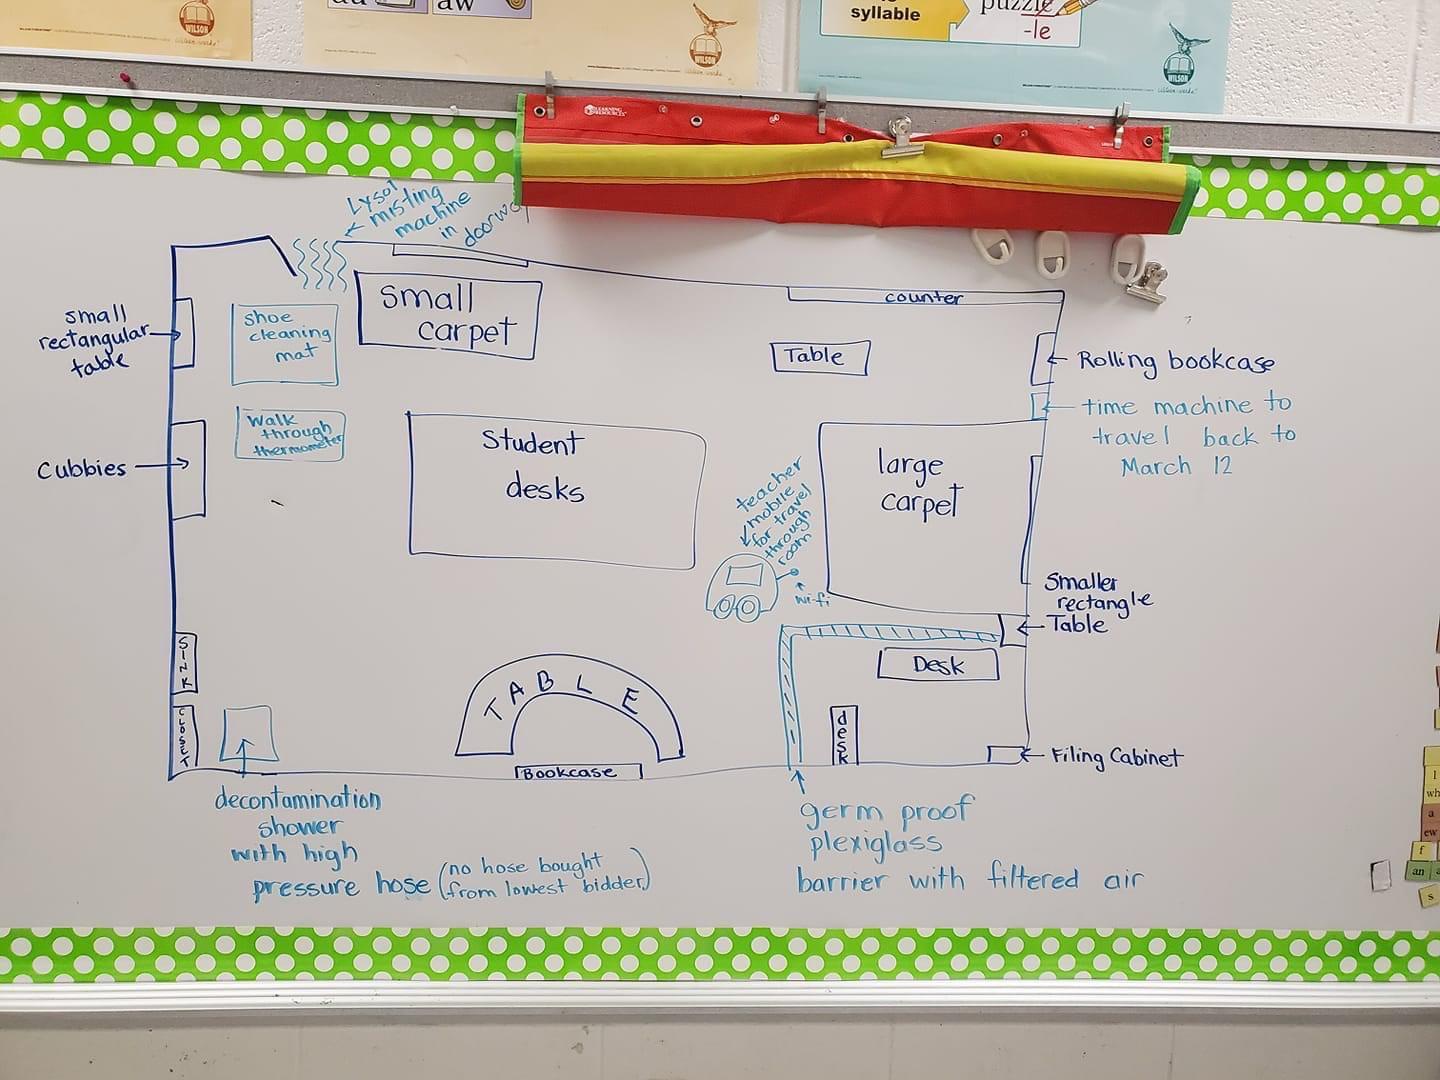 aw
WILSON
WILSON
syllable
puzzle
-le
WILSON
LEARNING
RESOURCES
Lysol
misting
machine
in
small
rectangular
table
Shoe
cleaning
mat
Small
carpet
counter
Table
Rolling bookcase
time machine to
travel back to
March 12
Walk
through
thermometer
Cubbies
Student
desks
large
carpet
teacher
mobile
for travel
through
room
wifi
Smaller
rectangle
Table
SINK
CLOSET
TABLE
Bookcase
Desk
desk
Filing Cabinet
decontamination
shower
with high
pressure hose (no hose bought
from lowest bidder)
germ proof
plexiglass
barrier with filtered air
l
wh
a
ew
f
an
s